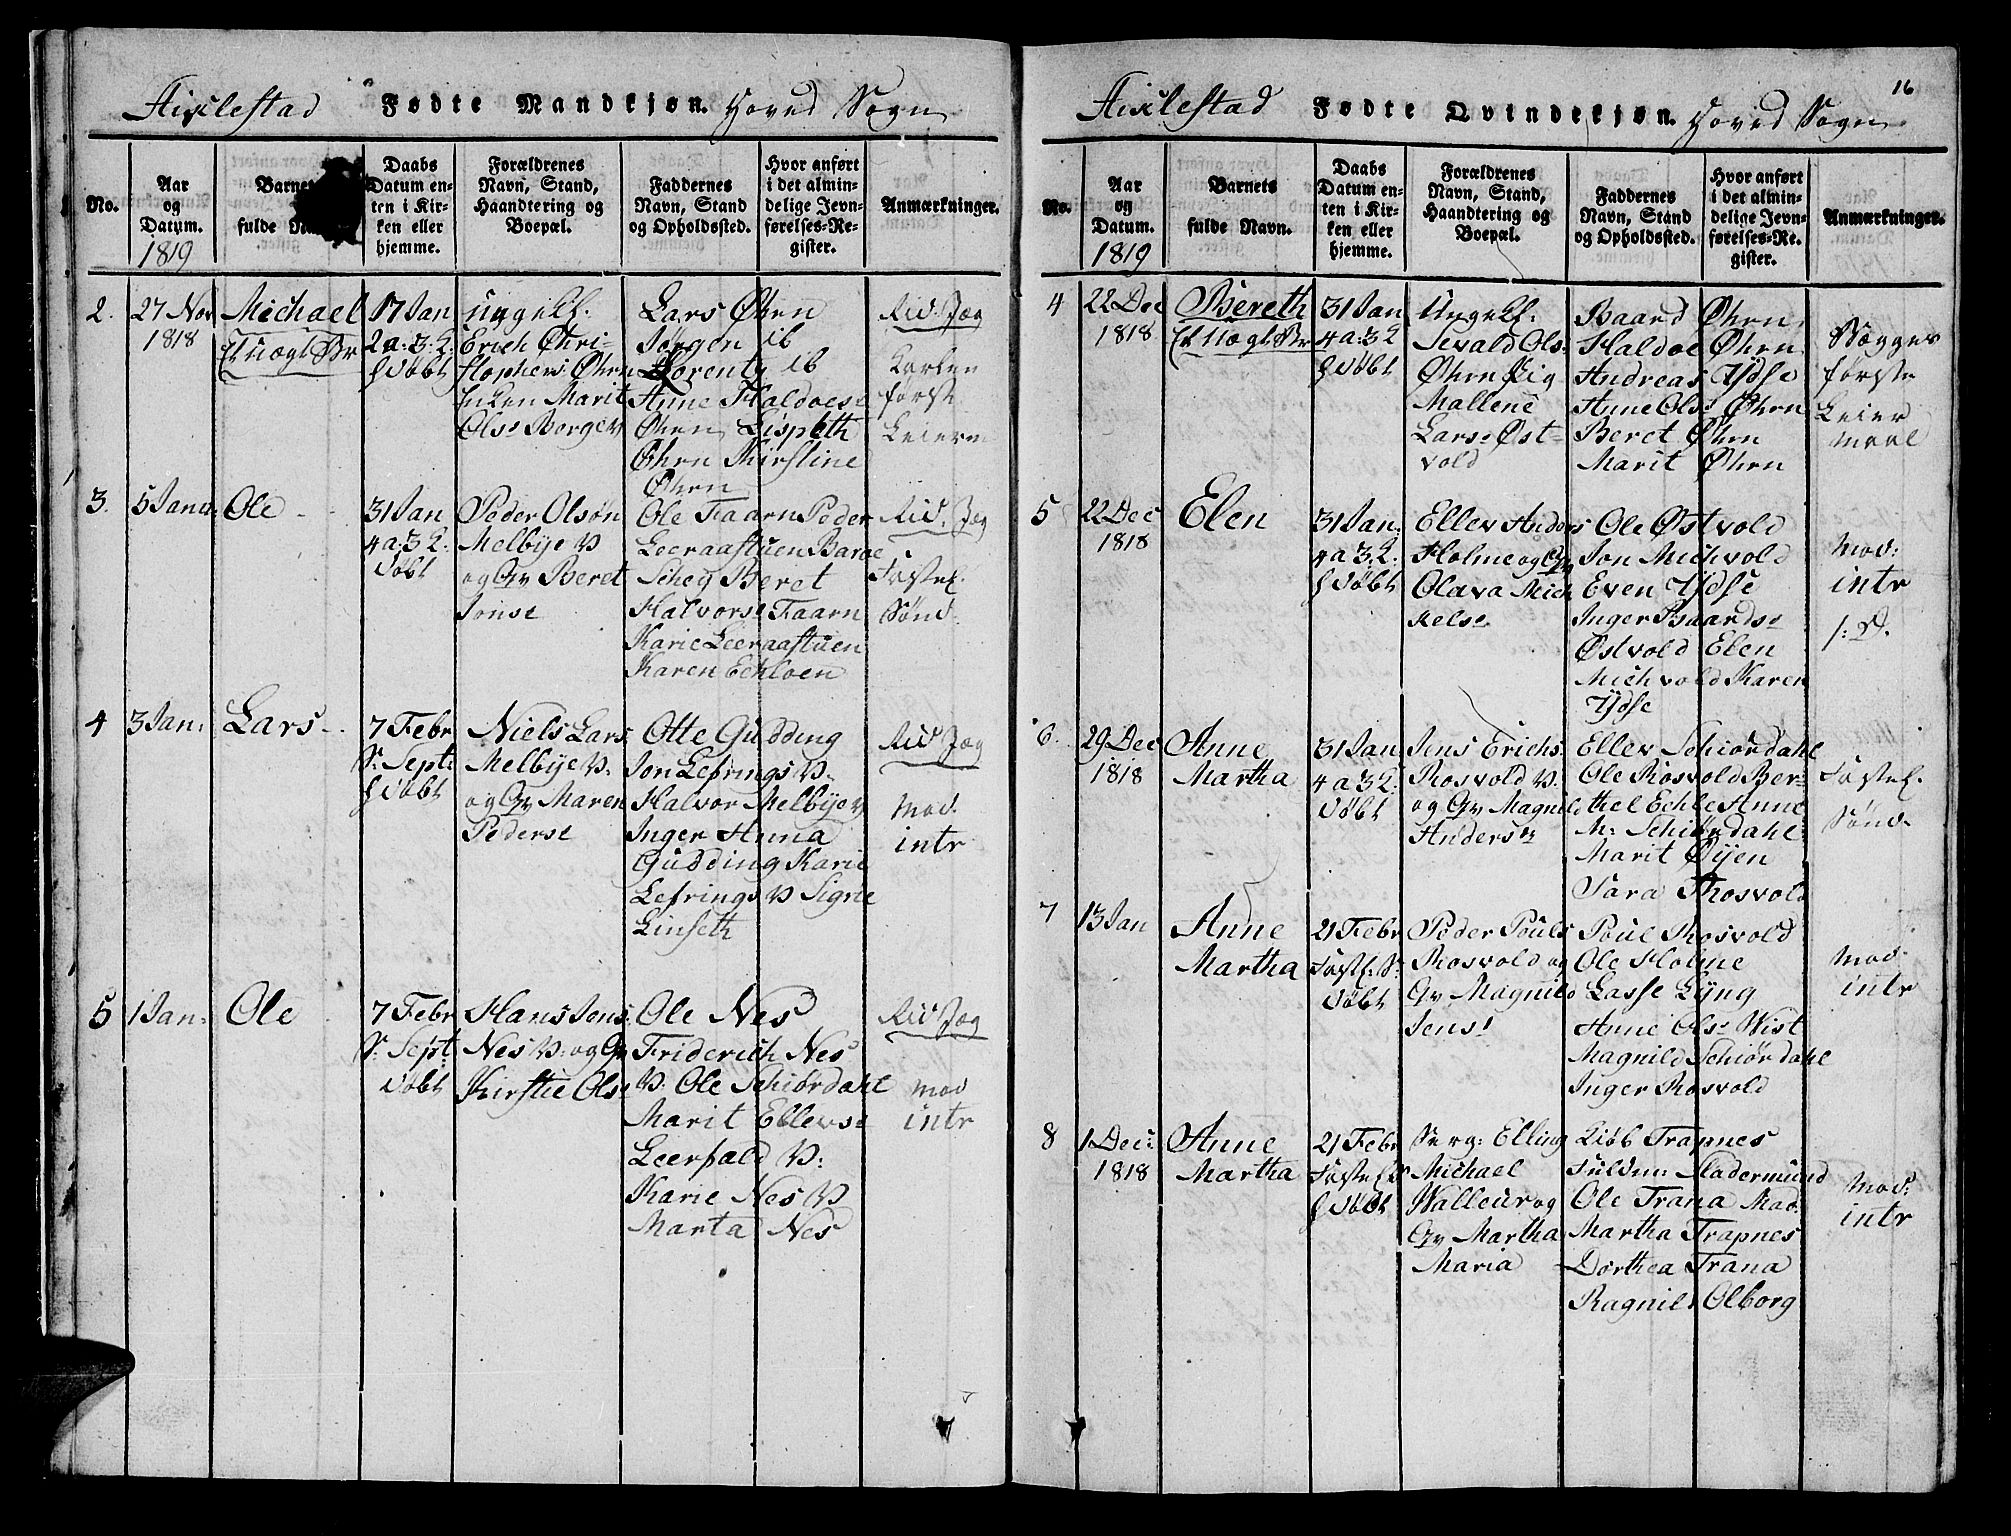 Aixlestad Fødte Mandkjøn. Hoved Sogn
No.
Aar
og
Datum.
1819
Barnets
fulde Navn
Daabs
Datum en-
ten i Kir-
ken eller
hjemme.
Forældrenes
Navn, Stand,
Haandtering og
Boepæl.
Faddernes
Navn, Stand
og Opholdssted.
Hvor anført
i det almin-
delige Jevn-
førelses-Re-
gister.
Anmærkninger.
2. 27 Nov
1818
Michael
Et uægt Br
17 Jan
2 a: 3: L:
døbt
Ungelf.
Erich Chri-
stophers Øhrn
Marit
Ols: Borgev
Lars Øhrn
Jørgen ib
Lorentz ib
Anne Haldoese
Øhrn Lispeth
Øhrn Kirstine
Øhrn
Rid. Jæg
Karlen
første
Leierm
3. 5 Janu:
Ole
31 Jan
4 a: 3 L:
døbt
Peder Olsøn
Melbye v
og Gv Beret
Jonse
Ole Faarn Peder
Leeraastuen Baroe
Scheg Beret
Halvorse Faarn
Karie Leeraastuen
Karen Echloen
Rid. Jæg
Fastel.
Sønd.
4 3 Jan:
Lars
7 Febr
S: Sept:
døbt
Niels Lars
Melbye v:
og Gv Maren
Pederse
Otte Gudding
Jon Lefrings v:
Halvor Melbye v
Inger Anna
Gudding Karie
Lefrings v Sigrie
Linseth
Rid Jæg
Mod.
intr
5 1 Jan:
Ole
7 Febr
S: Sept:
døbt
Hans Jens:
Nes v: og Gv
Kirstie Olse
Ole Nes
Friderich Nes
v: Ole Schiørdahl
Marit Ellevse
Leerfald v:
Karie Nes v
Marta Nes
Rid Jæg
Mod
intr
16
Aixlestad Fødte Qvindekjøn. Hoved Sogn
No.
Aar
og
Datum.
1819
Barnets
fulde Navn.
Daabs
Datum en-
ten i Kir-
ken eller
hjemme.
Forældrenes
Navn, Stand,
Haandtering og
Boepæl.
Faddernes
Navn, Stand
og Opholdssted.
Hvor anført
i det almin-
delige Jevn-
førelses-Re-
gister.
Anmærkninger.
4 22 Dec
1818
Bereth
Et Uægt Br
31 Jan
4 a: 3 L
døbt
Ungelf:
Sevald Ols:
Øhrn Pig
Mallene
Lars: Øst-
vold
Baard Øhrn
Haldoe Øhrn
Andreas Ydse
Anne Ols: Øhrn
Beret Øhrn
Marit Øhrn
Begges
første
Leier
maal
5 22 Dec
1818
Elen
31 Jan.
4 a 3 L:
døbt
Ellev Anders
Holme og Gv
Olava Mich
kelse
Ole Østvold
Jon Michvold
Even Ydse
Inger Baards:
Østvold Elen
Michvold Karen
Ydse
Mod:
intr
6. 29 Dec
1818
Anne
Martha
31 Jan
4 a 3 L:
døbt
Jens Erichs:
Rosvold v:
og Gv Magnild
Anders:
Ellev Schiørdahl
Ole Rosvold Ber-
thel Echle Anne
M: Schiørdahl
Marit Øijen
Sara Rosvold
Fastel.
Sønd.
7 13 Jan
Anne
Martha
21 Febr
Fastl: S:
døbt
Peder Pouls
Rosvold og
Gv Magnild
Jens:
Poul Rosvold
Ole Holme
Lasse Lyng
Anne Ols: Wist
Magnild Schiørdahl
Inger Rosvold
Mod.
intr
8 1 Dec:
1818
Anne
Martha
21 Febr
Fastel S
døbt
Serg: Elling
Michael
Walleur og
Gv Martha
Maria
Liøb Trapnes
Fuldm: Hadermund
Ole Trana Mad:
Martha Trapnes
Dorthea Trana
Ragnild Olborg
Mod:
intr